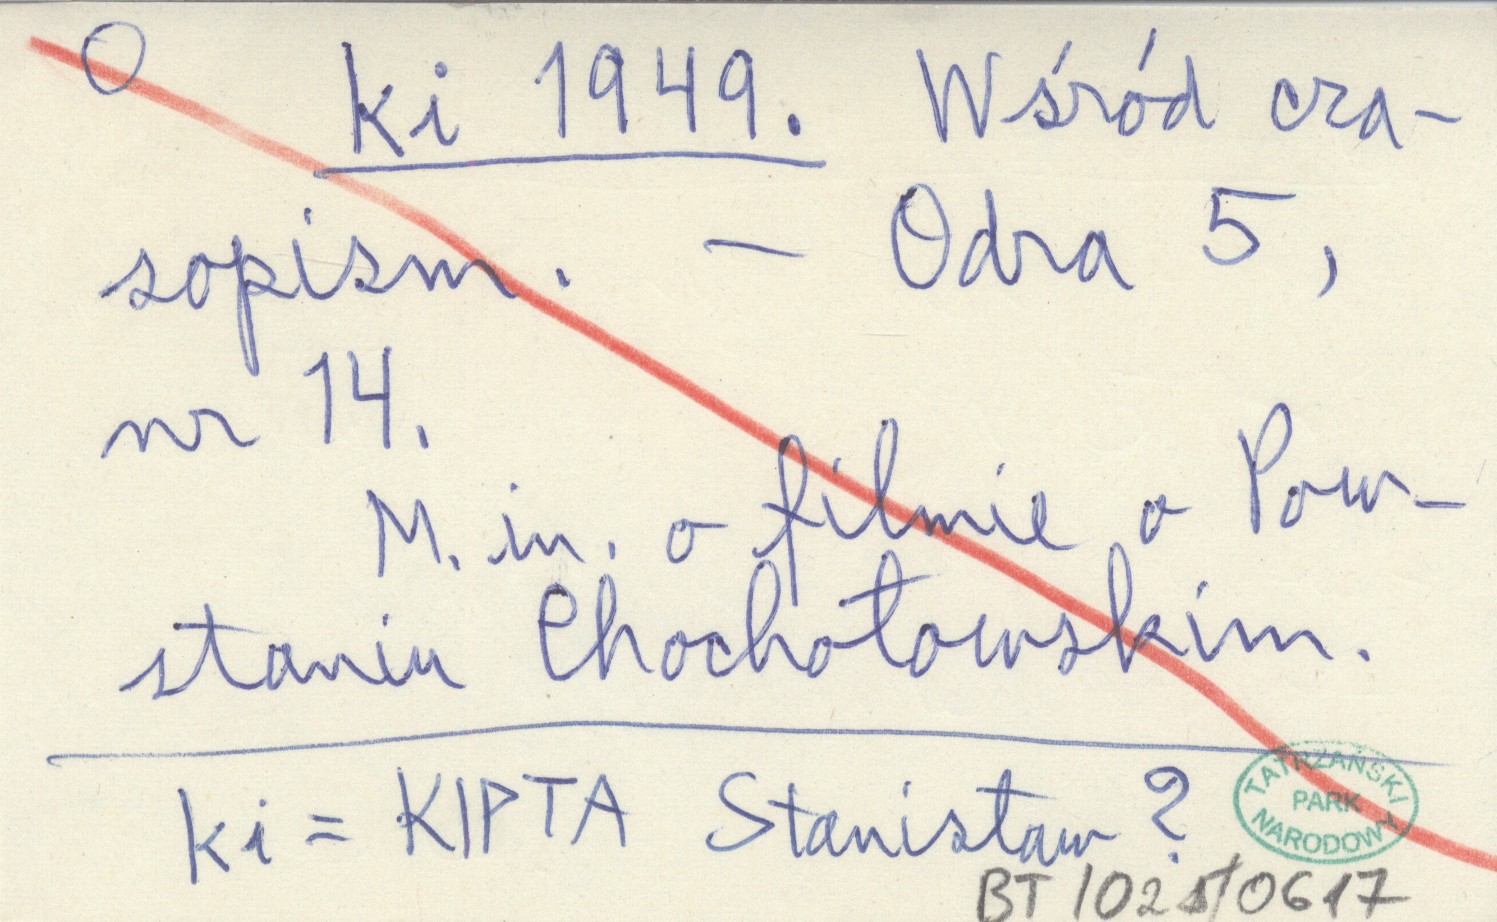 O ki 1949. Wśród cza-
sopism. — Odra 5,
nr 14.
M. in. o filmie o Pow-
staniu Chochołowskim.
ki = KIPTA Stanisław?
TATRZAŃSKI
PARK
NARODOWY
BT/1021/0617